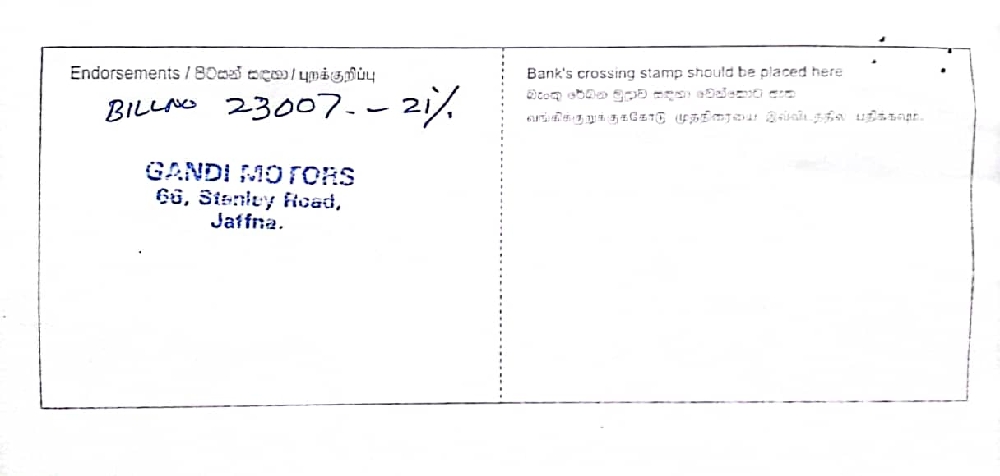 Endorsements / පිටසන් සඳහා / புறக்குறிப்பு
BILL NO 23007. - 21%
GANDI MOTORS
66, Stanley Road,
Jaffna.
Bank's crossing stamp should be placed here
බැංකු රේඛන මුද්‍රාව සඳහා වෙන්කොට ඇත
வங்கிக்குறுக்குக்கோடு முத்திரையை இவ்விடத்தில் பதிக்கவும்.